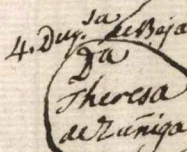 4. Duq.sa de Beja
Da
Theresa
de Zuñiga